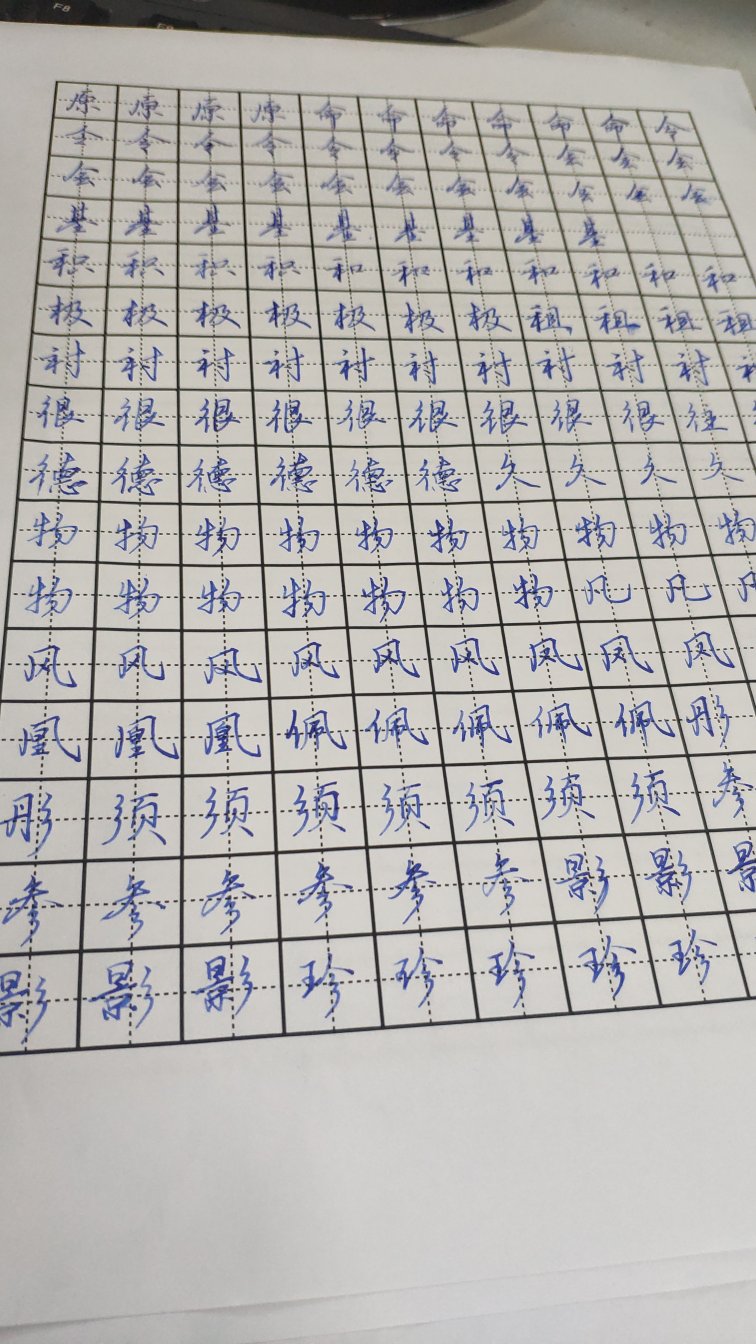 F8
原原原原命命命命命命令
令令令令令令令令会会会
会会会会会会会会会会会
基基基基基基基基基
积积积积和和和和和和和
极极极极极极极租租租租
衬衬衬衬衬衬衬衬衬衬
很很很很很很很很很往
德德德德德德久久久久
物物物物物物物物物物
物物物物物物物凡凡
风风风风风风风风风
凰凰凰佩佩佩佩佩彤
彤须须须须须须须参
参参参参参参影影影
影影影珍珍珍珍珍